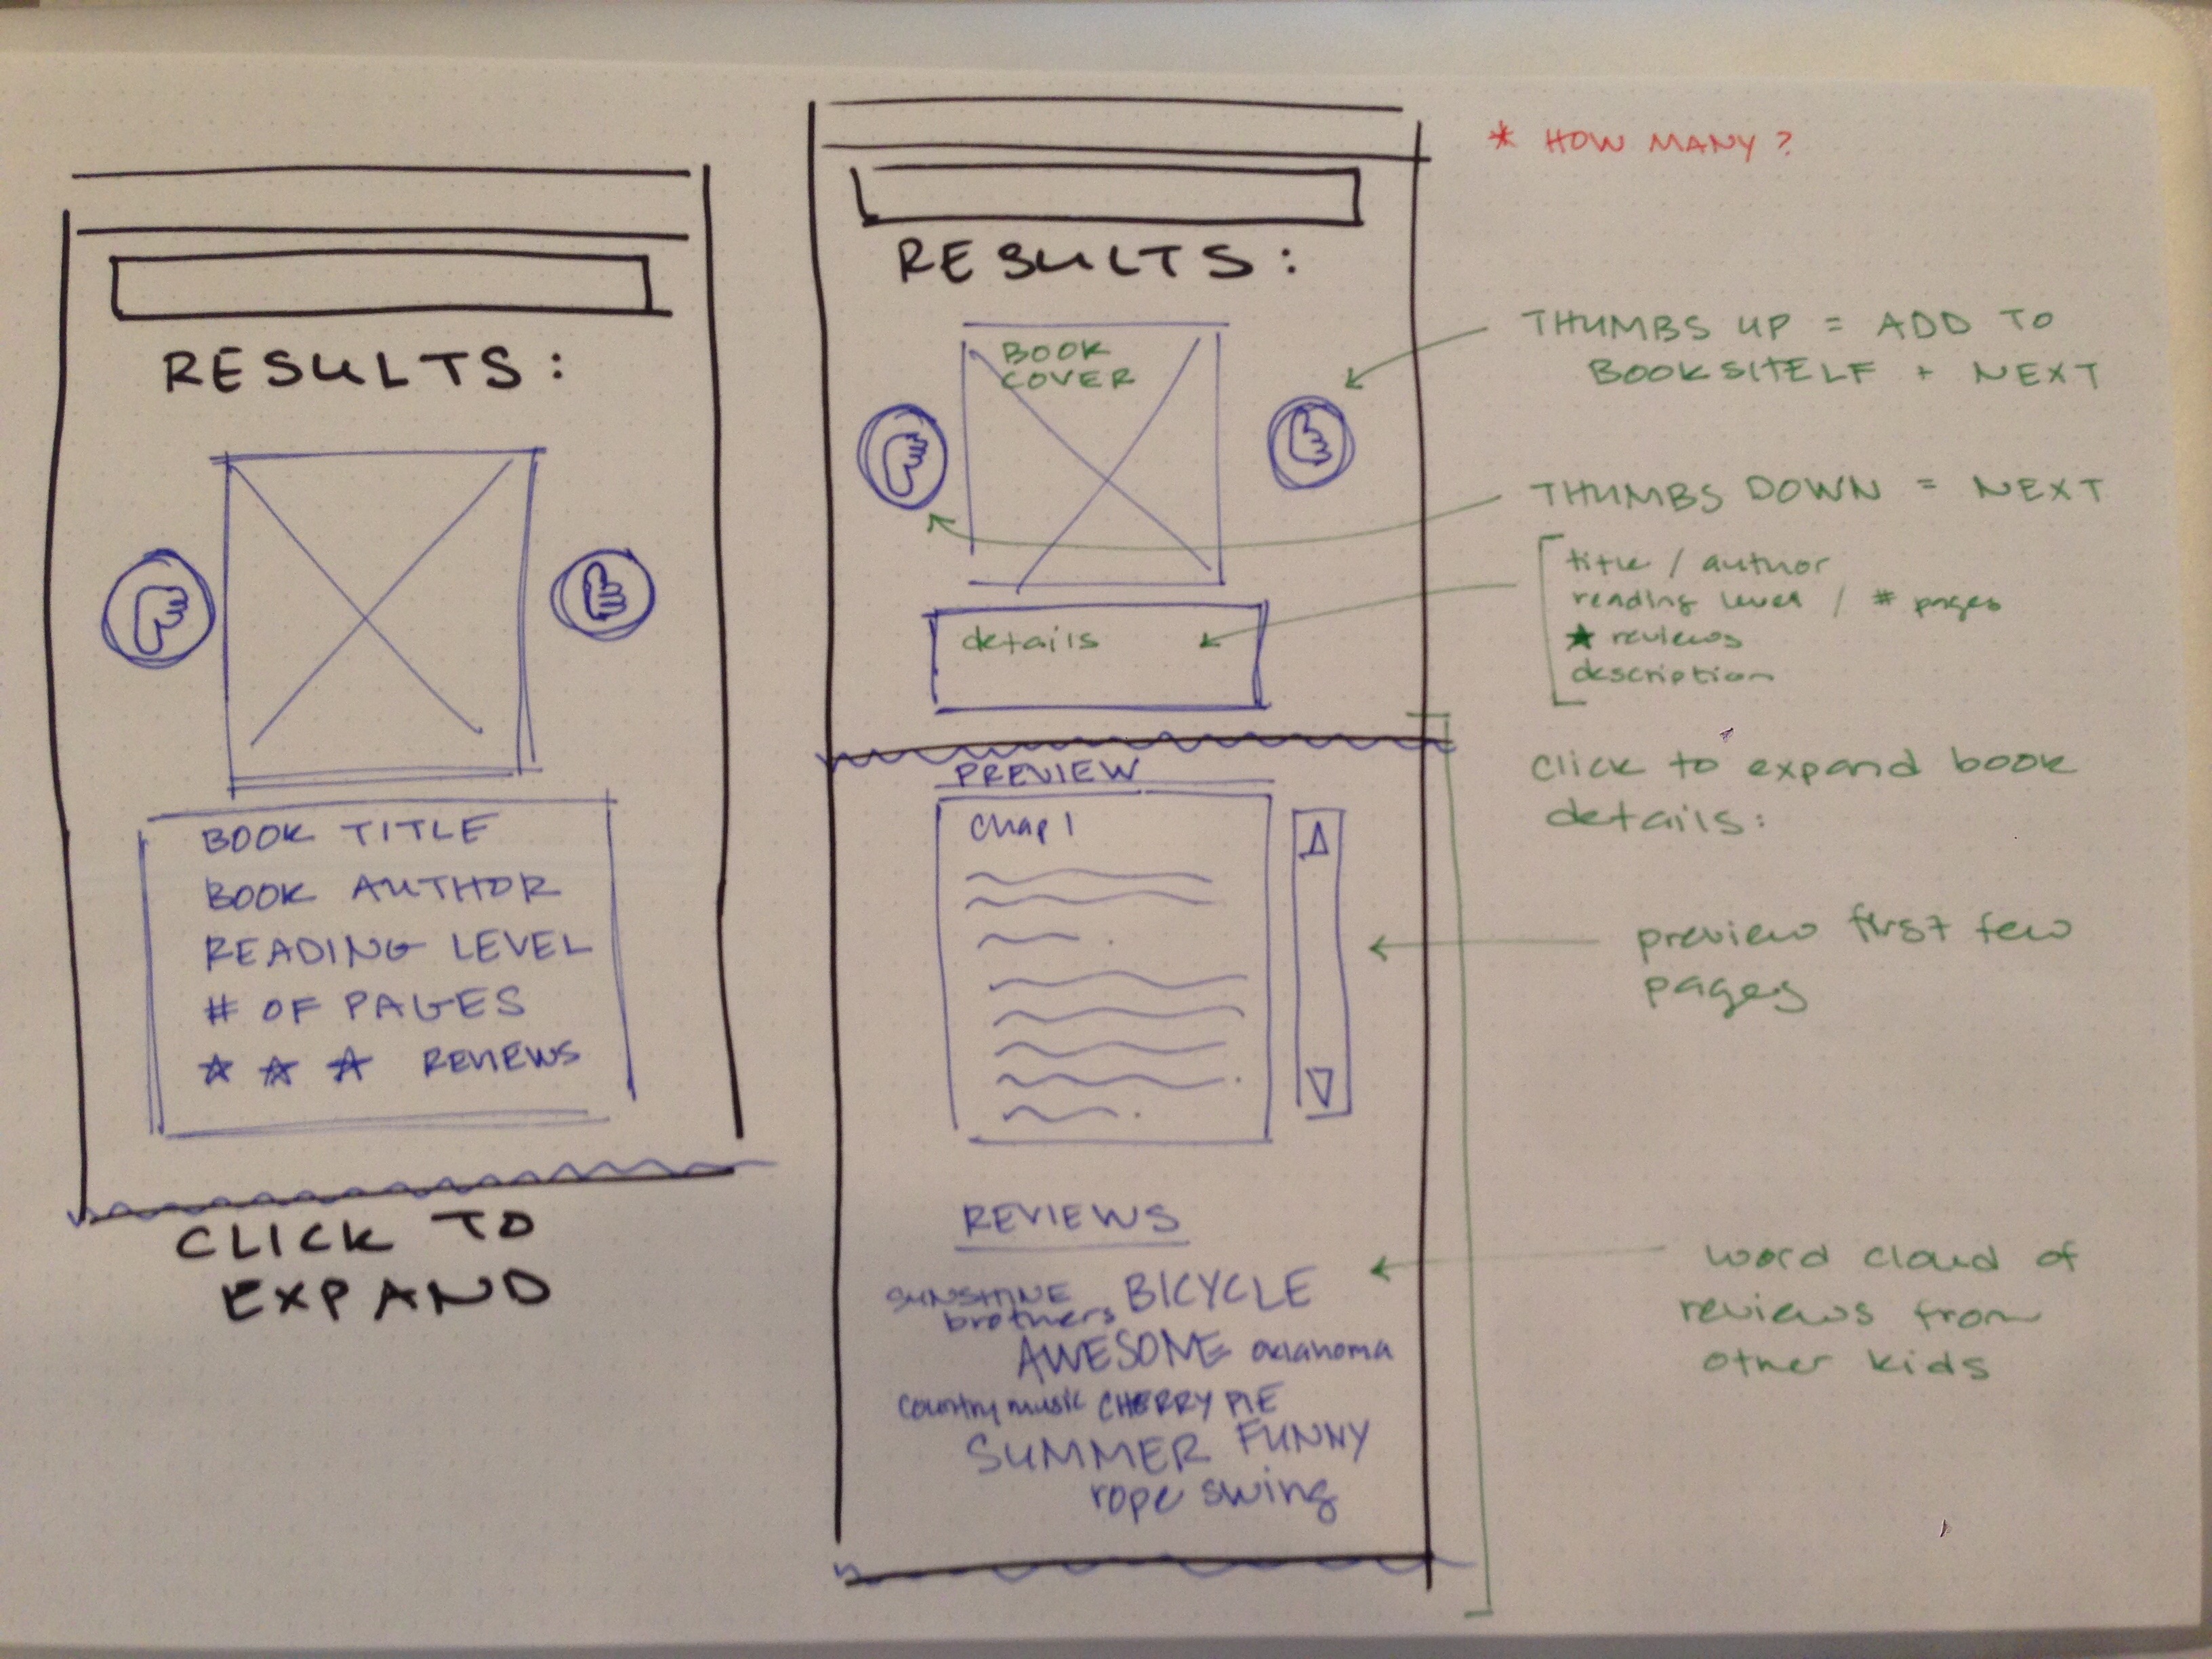 RESULTS:
BOOK TITLE
BOOK AUTHOR
READING LEVEL
# OF PAGES
★ ★ ★ REVIEWS
CLICK TO
EXPAND
RESULTS:
BOOK
COVER
details
PREVIEW
Chap 1
REVIEWS
SUNSHINE BICYCLE
brothers
AWESOME oklahoma
country music CHERRY PIE
SUMMER FUNNY
rope swing
* HOW MANY?
THUMBS UP = ADD TO
BOOKSHELF + NEXT
THUMBS DOWN = NEXT
title / author
reading level / # pages
★ reviews
description
click to expand book
details:
preview first few
pages
word cloud of
reviews from
other kids